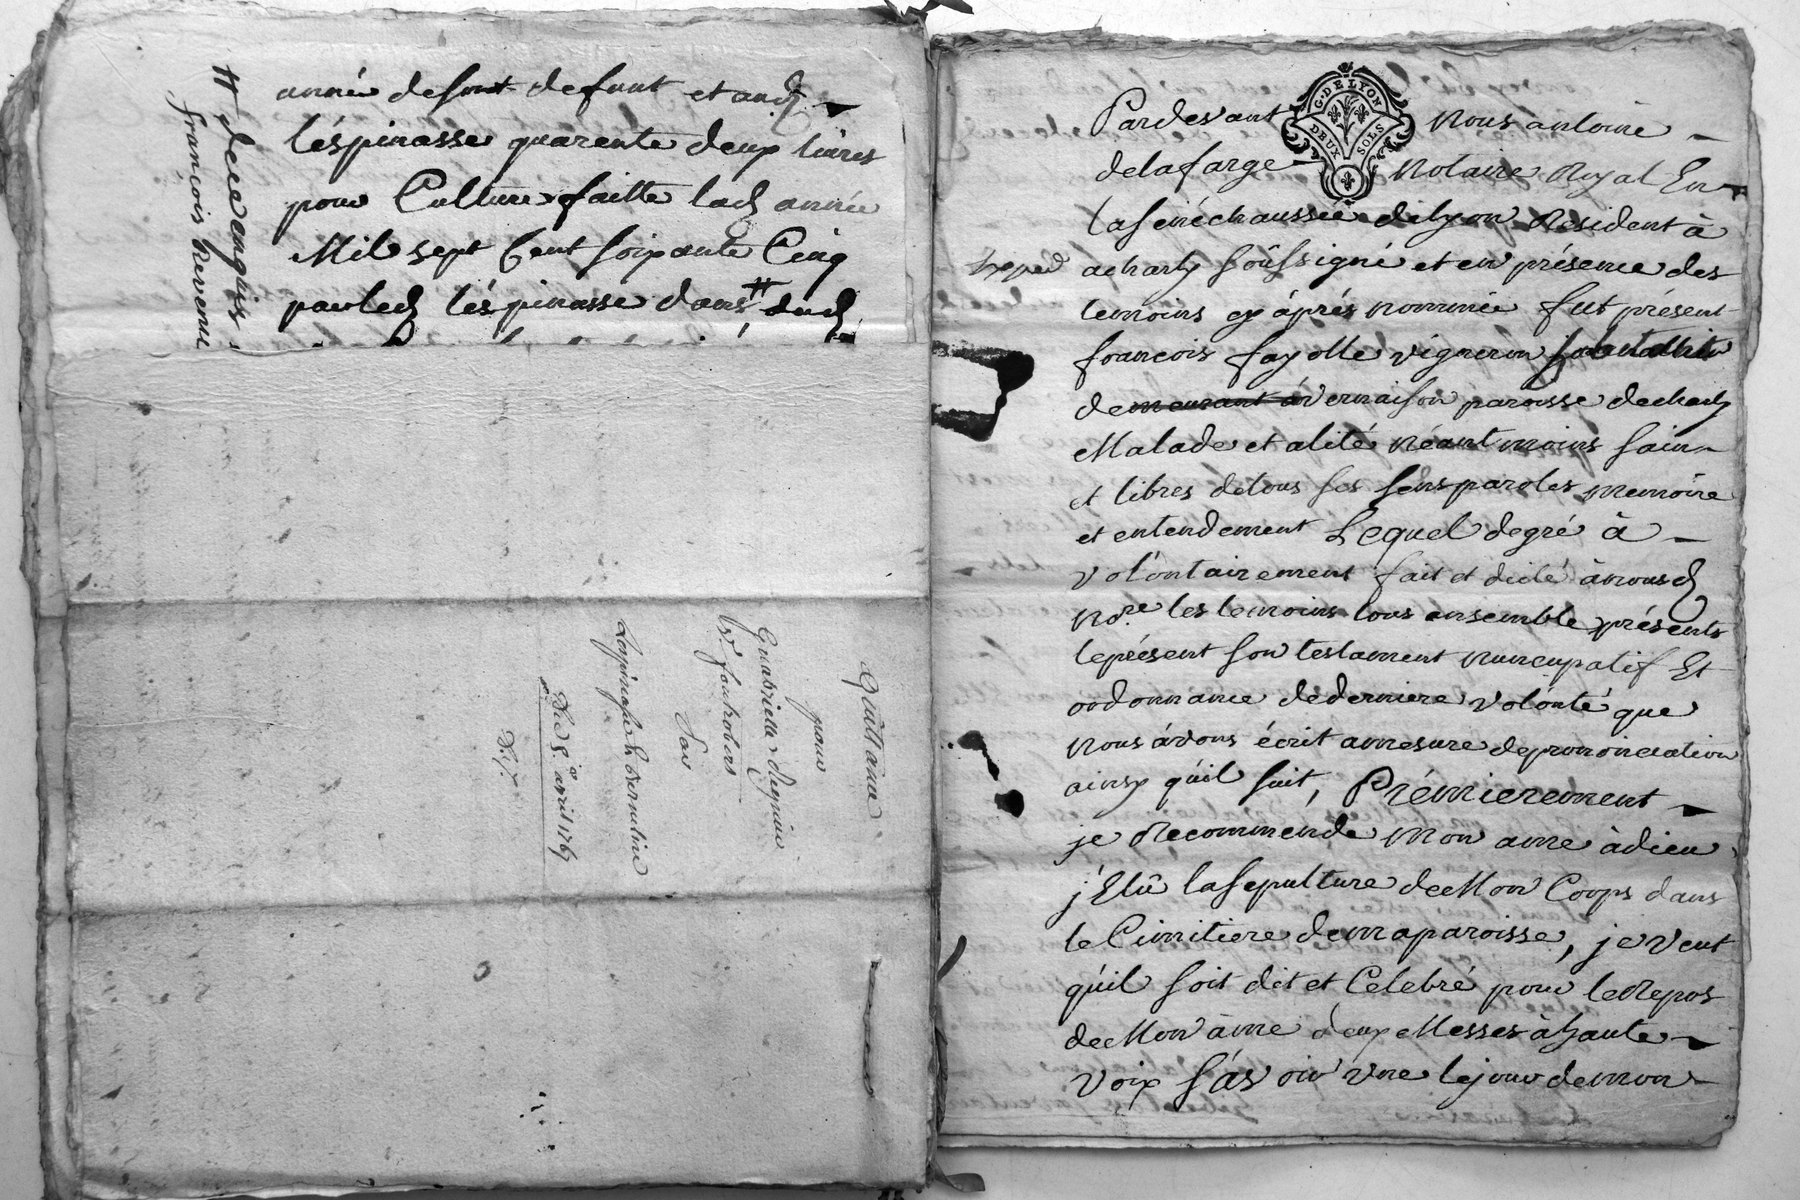 année defunt defunt et aud
léspinasse quarente deux livres
pour Culture faitte lad année
Mil sept Cent soixante Cinq
par led léspinasse dans # dud
françois Revenu
Quittance
pour
Guabrielle
Sau
Lespinasse
Du 5e avril 1767
G. DE LYON
DEUX SOLS
Pardevant Nous antoine
delafarge Notaire Royal En
la sénéchaussée de lyon Résident à
Exped
acharly soûssigné et en présence des
temoins cy áprés nommée fut présent
francois fayolle vigneron habitant
demeurant à vernaison paroisse decharly
Malade et alité néantmoins sain
et libres detous ses sens paroles memoire
et entendement Lequel degré à
volontairement fait et dicté ànousd
No.re les temoins tous ensemble présents
leprésent son testament nuncupatif Et
ordonnance dédernière volonté que
Nous ávons écrit amesure deprononciation
ainsy qúil suit, Prémierement
je Recommende Mon ame àdieu
j'Elû lasepulture deMon Corps dans
le Cimitiere demaparoisse, je veut
qúil soit dit et Celebré pour leRepos
deMon àme deux Messes àhaute
voix sávoir vne lejour demon